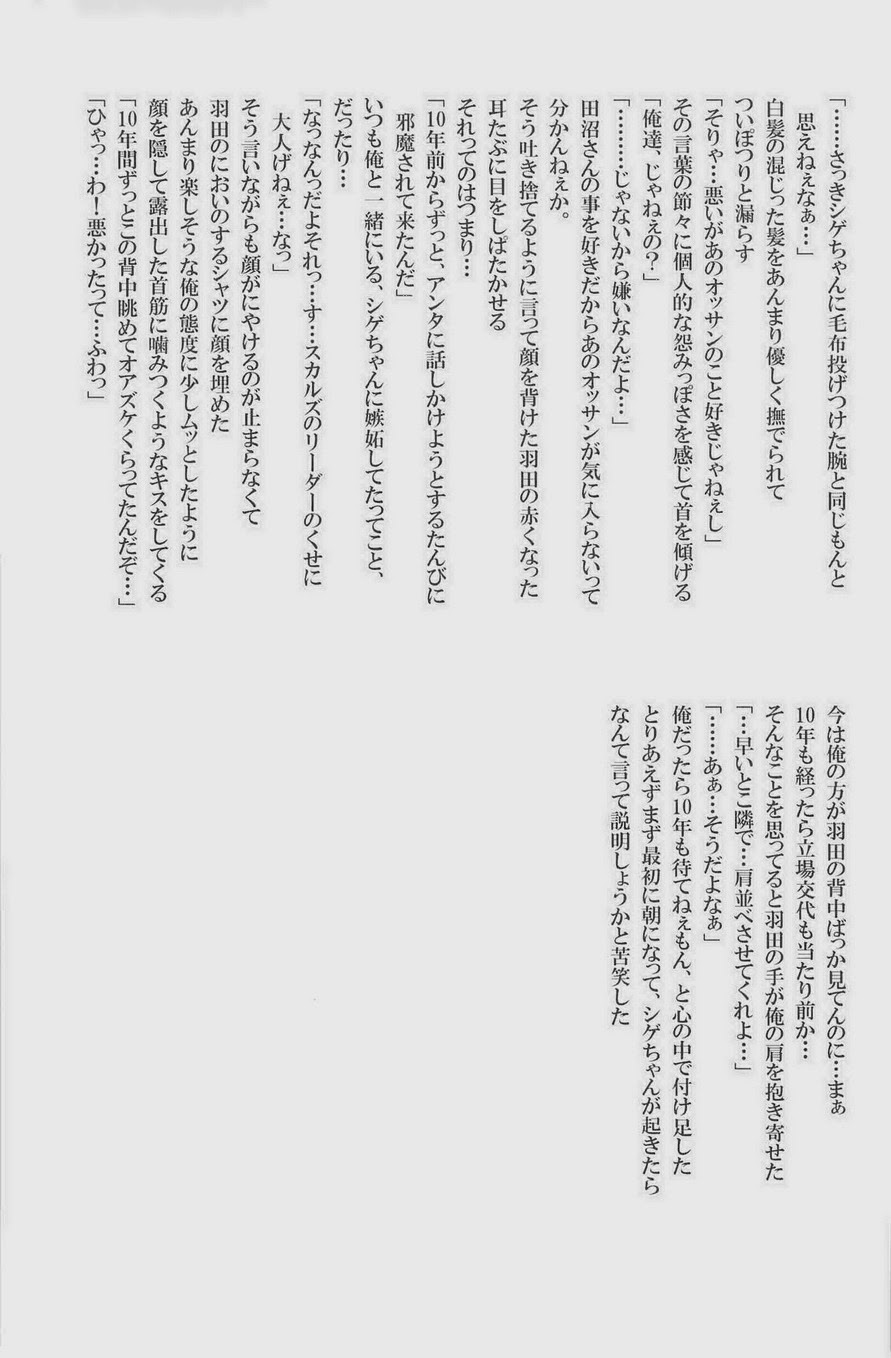 「……さっきシゲちゃんに毛布投げつけた腕と同じもんと
思えねぇなぁ…」
白髪の混じった髪をあんまり優しく撫でられて
ついぽつりと漏らす
「そりゃ…悪いがあのオッサンのこと好きじゃねぇし」
その言葉の節々に個人的な怨みっぽさを感じて首を傾げる
「俺達、じゃねぇの？」
「………じゃないから嫌いなんだよ…」
田沼さんの事を好きだからあのオッサンが気に入らないって
分かんねぇか。
そう吐き捨てるように言って顔を背けた羽田の赤くなった
耳たぶに目をしぱたかせる
それってのはつまり…
「10年前からずっと、アンタに話しかけようとするたんびに
邪魔されて来たんだ」
いつも俺と一緒にいる、シゲちゃんに嫉妬してたってこと、
だったり…
「なっなんっだよそれっ…す…スカルズのリーダーのくせに
大人げねぇ…なっ」
そう言いながらも顔がにやけるのが止まらなくて
羽田のにおいのするシャツに顔を埋めた
あんまり楽しそうな俺の態度に少しムッとしたように
顔を隠して露出した首筋に噛みつくようなキスをしてくる
「10年間ずっとこの背中眺めてオアズケくらってたんだぞ…」
「ひゃっ…わ！悪かったって…ふわっ」
今は俺の方が羽田の背中ばっか見てんのに…まぁ
10年も経ったら立場交代も当たり前か…
そんなことを思ってると羽田の手が俺の肩を抱き寄せた
「…早いとこ隣で…肩並べさせてくれよ…」
「……あぁ…そうだよなぁ」
俺だったら10年も待てねえもん、と心の中で付け足した
とりあえずまず最初に朝になって、シゲちゃんが起きたら
なんて言って説明しょうかと苦笑した